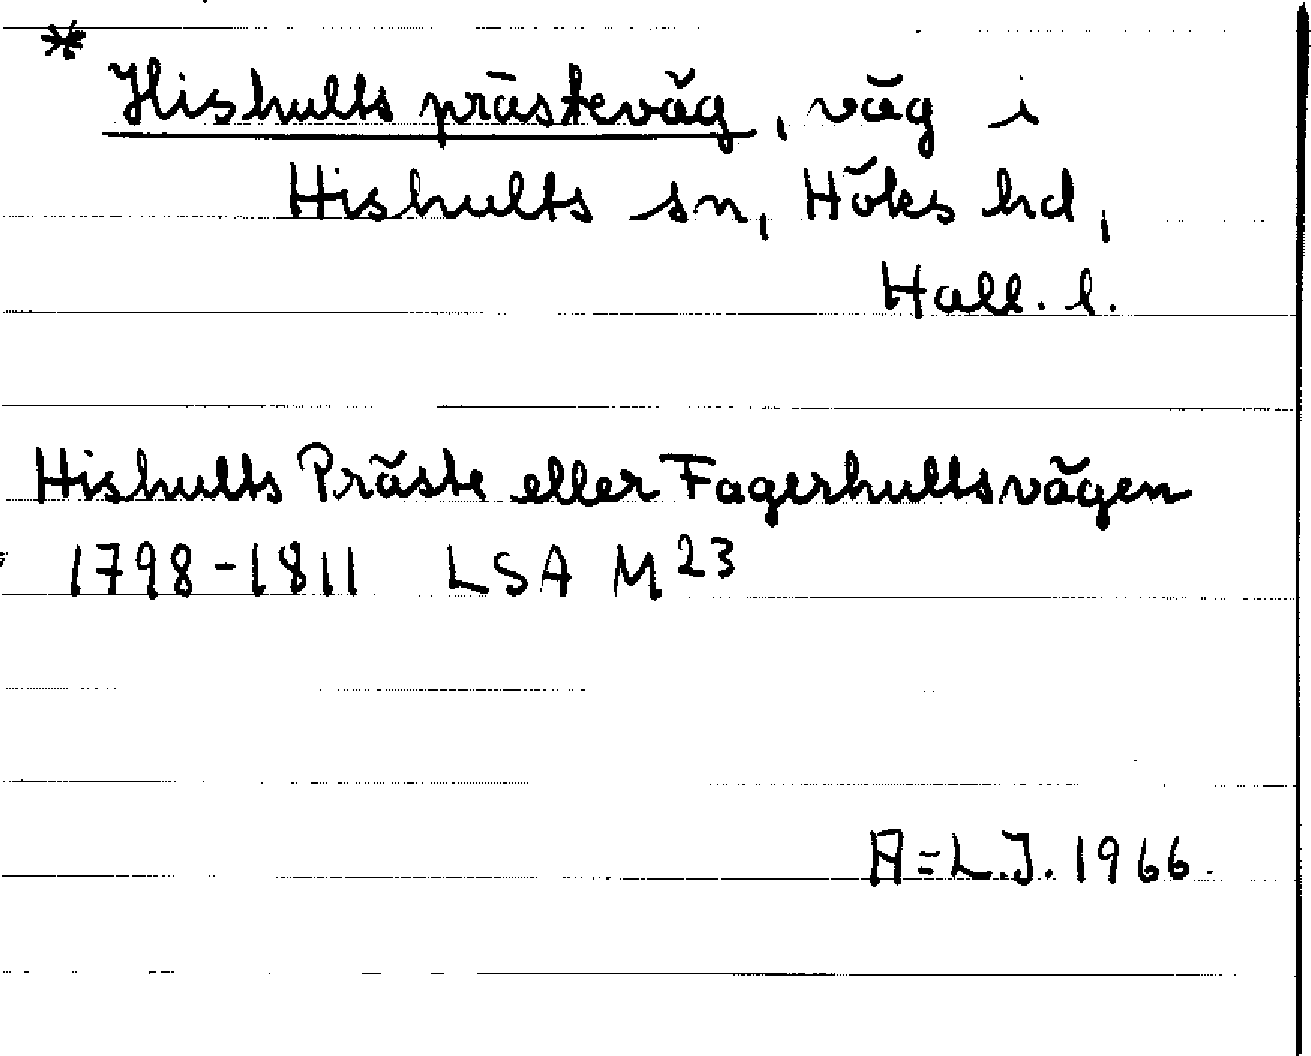 * Hishults prästeväg, väg i
Hishults sn, Höks hd,
Hall. l.
Hishults Präste eller Fagerhultsvägen
1798-1811 LSA M23
A=L.J. 1966.